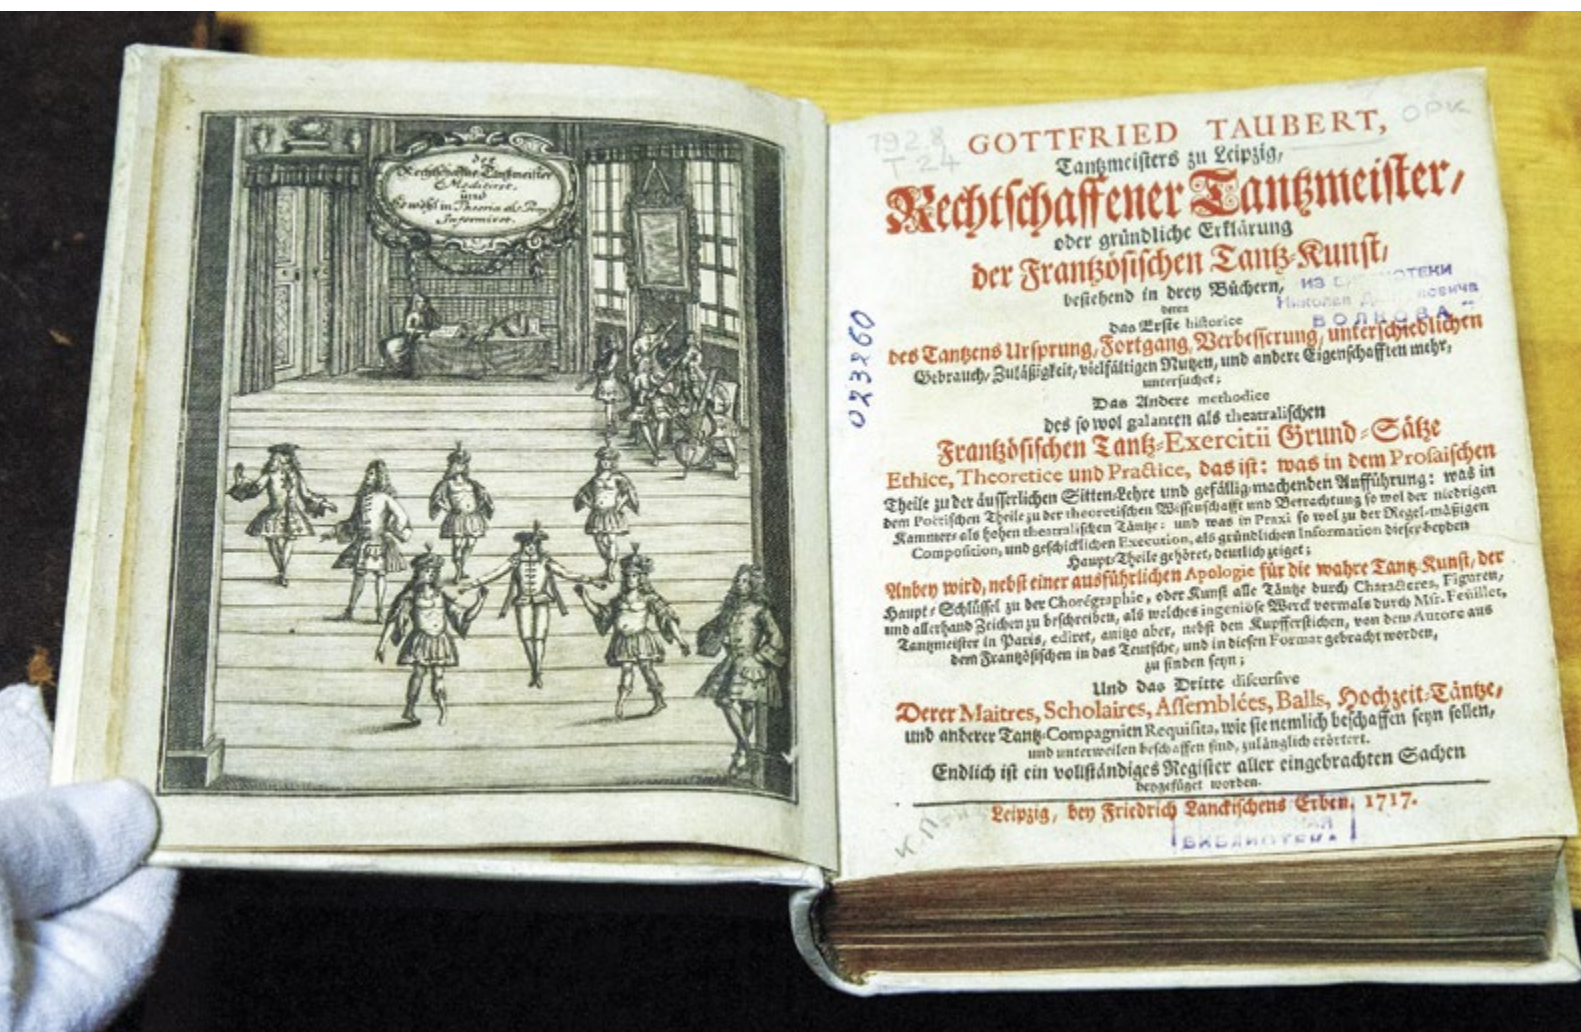 der
Rechtschaffne Tantzmeister
Meditiret,
und
So wohl in Theoria als
Informiret.
792.8
T 24
ОРК
GOTTFRIED TAUBERT,
Tantzmeisters zu Leipzig,
Rechtschaffener Tantzmeister,
oder gründliche Erklärung
der Frantzösischen Tantz-Kunst,
bestehend in drey Büchern,
deren
das Erste historice
des Tantzens Ursprung, Fortgang, Verbesserung, unterschiedlichen
Gebrauch, Zuläßigkeit, vielfältigen Nutzen, und andere Eigenschafften mehr,
untersuchet;
Das Andere methodice
des so wol galanten als theatralischen
Frantzösischen Tantz-Exercitii Grund-Sätze
Ethice, Theoretice und Practice, das ist: was in dem Prosaischen
Theile zu der äusserlichen Sitten-Lehre und gefällig-machenden Aufführung: was in
dem Poetischen Theile zu der theoretischen Wissenschafft und Betrachtung so wol der niedrigen
Kammer- als hohen theatralischen Täntze: und was in Praxi so wol zu der Regel-mäßigen
Composition, und geschicklichen Execution, als gründlichen Information dieser beyden
Haupt-Theile gehöret, deutlich zeiget;
Anbey wird, nebst einer ausführlichen Apologie für die wahre Tantz-Kunst, der
Haupt-Schlüssel zu der Chorégraphie, oder Kunst alle Täntze durch Characteres, Figuren,
und allerhand Zeichen zu beschreiben, als welches ingeniöse Werck vormals durch Msr. Feüillet,
Tantzmeister in Paris, ediret, anitzo aber, nebst den Kupfferstichen, von dem Autore aus
dem Frantzösischen in das Teutsche, und in diesen Format gebracht worden,
zu finden seyn;
Und das Dritte discursive
Derer Maitres, Scholaires, Assemblées, Balls, Hochzeit-Täntze,
und anderer Tantz-Compagnien Requisita, wie sie nemlich beschaffen seyn sollen,
und unterweilen beschaffen sind, zulänglich erörtert.
Endlich ist ein vollständiges Register aller eingebrachten Sachen
beygefüget worden.
Leipzig, bey Friedrich Lanckischens Erben, 1717.
ИЗ
Николая
ВОЛКОВА
023260
БИБЛИОТЕКА